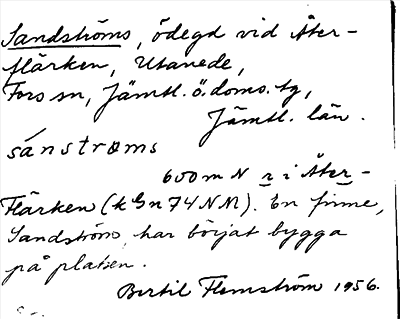 Sandströms, ödegd vid Åter-
flärken, Utanede,
Fors sn, Jämtl. ö. doms. tg,
Jämtl. län.
sánstrœms
600 m N r i Åter-
Flärken (kGn74NM). En finne,
Sandström har börjat bygga
på platsen.
Bertil Flemström 1956.